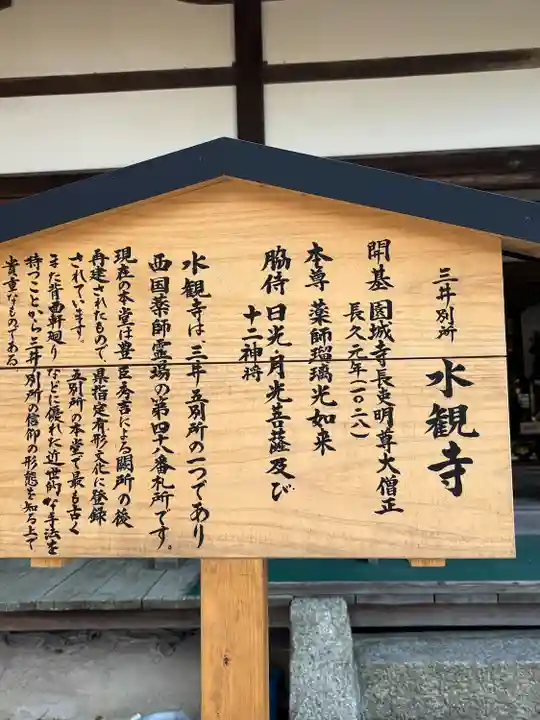 三井別所
水観寺
開基 園城寺長吏明尊大僧正
長久元年(一〇二八)
本尊 薬師瑠璃光如来
脇侍 日光・月光菩薩及び
十二神将
水観寺は、三井五別所の一つであり
西国薬師霊場の第四十八番札所です。
現在の本堂は豊臣秀吉による闕所の後
再建されたもので、県指定有形文化に登録
されています。五別所の本堂で最も古く
また背面軒廻りなどに優れた近世的な手法を
持つことから三井別所の信仰の形態を知る上で
貴重なものである